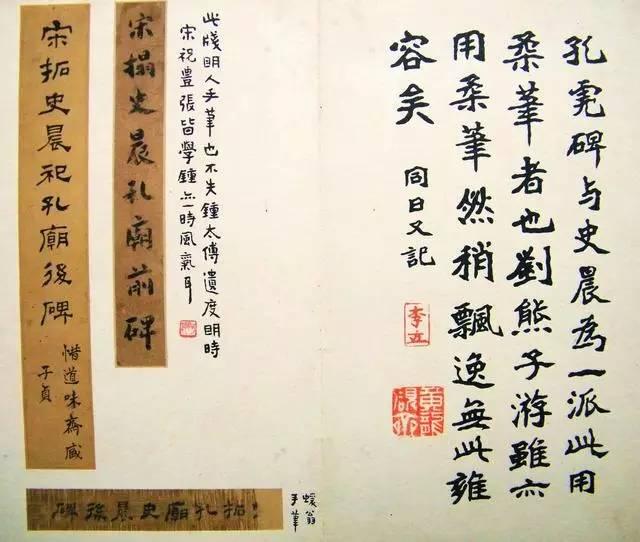 孔碑与史晨為一派此用
柔筆者也劉熊子游雖亦
用柔筆然稍飄逸無此雍
容矣 同日又記
此牋明人手筆也不失鍾太傅遺度明時
宋祝豐張皆學鍾亦一時風氣耳
宋搨史晨孔廟前碑
宋拓史晨祀孔廟後碑
惜道味齋藏
子貞
蝯翁
手筆
拓孔廟史晨後碑